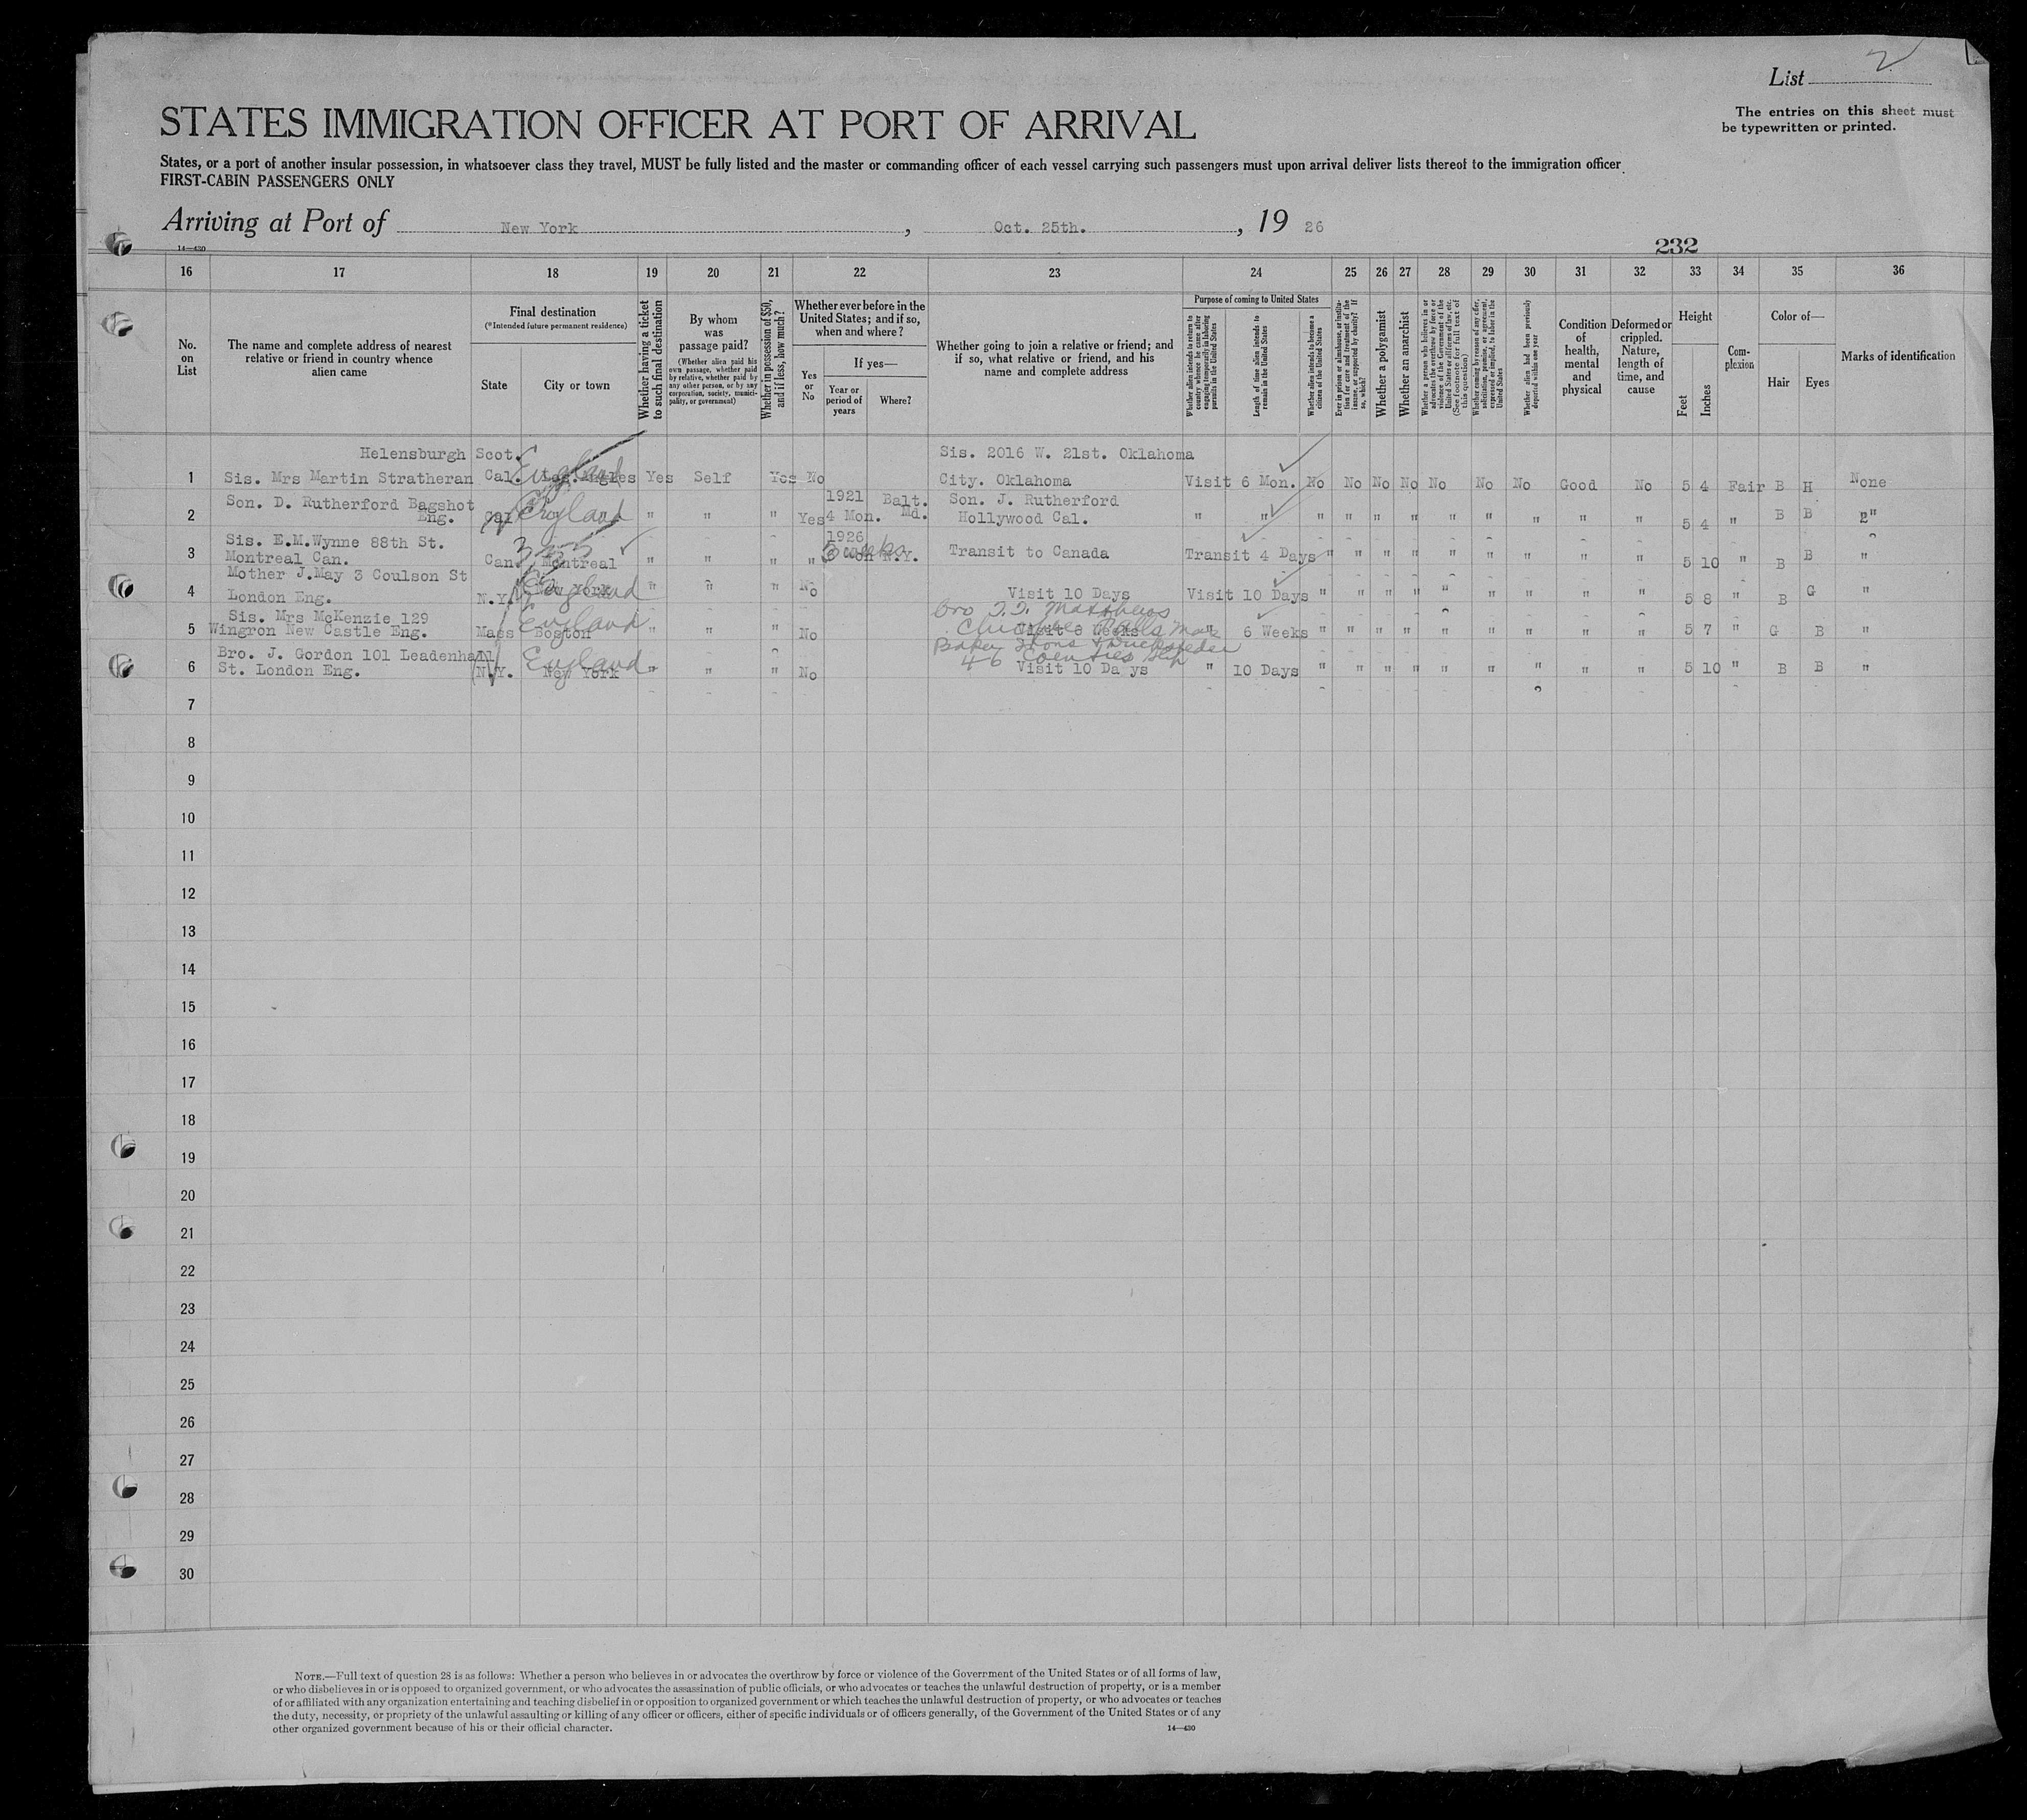 List 2
The entries on this sheet must
be typewritten or printed.
STATES IMMIGRATION OFFICER AT PORT OF ARRIVAL
States, or a port of another insular possession, in whatsoever class they travel, MUST be fully listed and the master or commanding officer of each vessel carrying such passengers must upon arrival deliver lists thereof to the immigration officer
FIRST-CABIN PASSENGERS ONLY
Arriving at Port of New York, Oct. 25th., 19 26
14—430
232
16 17 18 19 20 21 22 23 24 25 26 27 28 29 30 31 32 33 34 35 36
No.
on
List
The name and complete address of nearest
relative or friend in country whence
alien came
Final destination
(*Intended future permanent residence)
State
City or town
Whether having a ticket
to such final destination
By whom
was
passage paid?
(Whether alien paid his
own passage, whether paid
by relative, whether paid by
any other person, or by any
corporation, society, munici-
pality, or government)
Whether in possession of $50,
and if less, how much?
Whether ever before in the
United States; and if so,
when and where?
Yes
or
No
If yes—
Year or
period of
years
Where?
Whether going to join a relative or friend; and
if so, what relative or friend, and his
name and complete address
Purpose of coming to United States
Whether alien intends to return to
country whence he came after
engaging temporarily in laboring
pursuits in the United States
Length of time alien intends to
remain in the United States
Whether alien intends to become a
citizen of the United States
Ever in prison or almshouse, or institu-
tion for care and treatment of the
insane, or supported by charity? If
so, which?
Whether a polygamist
Whether an anarchist
Whether a person who believes in or
advocates the overthrow by force or
violence of the Government of the
United States or all forms of law, etc.
(See footnote for full text of
this question)
Whether coming by reason of any offer,
solicitation, promise, or agreement,
expressed or implied, to labor in the
United States
Whether alien had been previously
deported within one year
Condition
of
health,
mental
and
physical
Deformed or
crippled.
Nature,
length of
time, and
cause
Height
Feet
Inches
Com-
plexion
Color of—
Hair
Eyes
Marks of identification
Helensburgh Scot. Sis. 2016 W. 21st. Oklahoma
1 Sis. Mrs Martin Stratheran Cal. England Yes Self Yes No City. Oklahoma Visit 6 Mon. No No No No No No No Good No 5 4 Fair B H None
Son. D. Rutherford Bagshot 1921 Balt. Son. J. Rutherford
2 Eng. Cal England " " " Yes 4 Mon. Md. Hollywood Cal. " " " " " " " " " " " 5 4 " B B "
Sis. E.M.Wynne 88th St. 1926
3 Montreal Can. Can. Montreal " " " " N.Y. Transit to Canada Transit 4 Days " " " " " " " " " 5 10 " B B "
Mother J.May 3 Coulson St
4 London Eng. N.Y. New York England " " " No Visit 10 Days Visit 10 Days " " " " " " " " " 5 8 " B G "
Sis. Mrs McKenzie 129 England bro Matthews
5 Wingron New Castle Eng. Mass Boston " " " No Falls Mass " 6 Weeks " " " " " " " " " 5 7 " G B "
Bro. J. Gordon 101 Leadenhall England 46 Coenties Slip
6 St. London Eng. N.Y. New York " " " No Visit 10 Days " 10 Days " " " " " " " " " 5 10 " B B "
7
8
9
10
11
12
13
14
15
16
17
18
19
20
21
22
23
24
25
26
27
28
29
30
NOTE.—Full text of question 28 is as follows: Whether a person who believes in or advocates the overthrow by force or violence of the Government of the United States or of all forms of law,
or who disbelieves in or is opposed to organized government, or who advocates the assassination of public officials, or who advocates or teaches the unlawful destruction of property, or is a member
of or affiliated with any organization entertaining and teaching disbelief in or opposition to organized government or which teaches the unlawful destruction of property, or who advocates or teaches
the duty, necessity, or propriety of the unlawful assaulting or killing of any officer or officers, either of specific individuals or of officers generally, of the Government of the United States or of any
other organized government because of his or their official character.
14—430